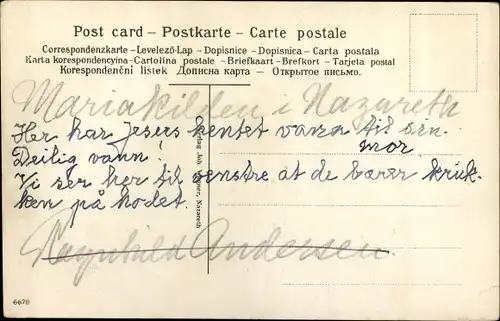 Post card – Postkarte – Carte postale
Correspondenzkarte – Levelező-Lap – Dopisnice – Dopisnica – Carta postala
Karta korespondencyina – Cartolina postale – Briefkaart – Brefkort – Tarjeta postal
Korespondenční lístek Дописна карта – Открытое письмо.
Mariakilden i Nazareth
Her har Jesus hentet vann til sin
mor
Deilig vann!
Vi ser her til venstre at de bærer kruk-
ken på hodet.
Ragnhild Andersen.
Nazareth
6670